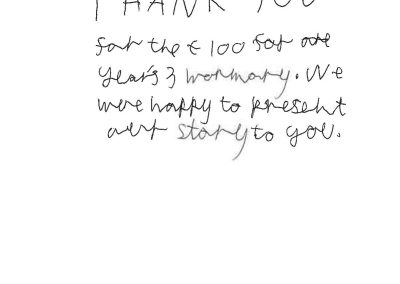 THANK YOU
for the € 100 for our
year's 3 wormary. We
were happy to present
our story to you.